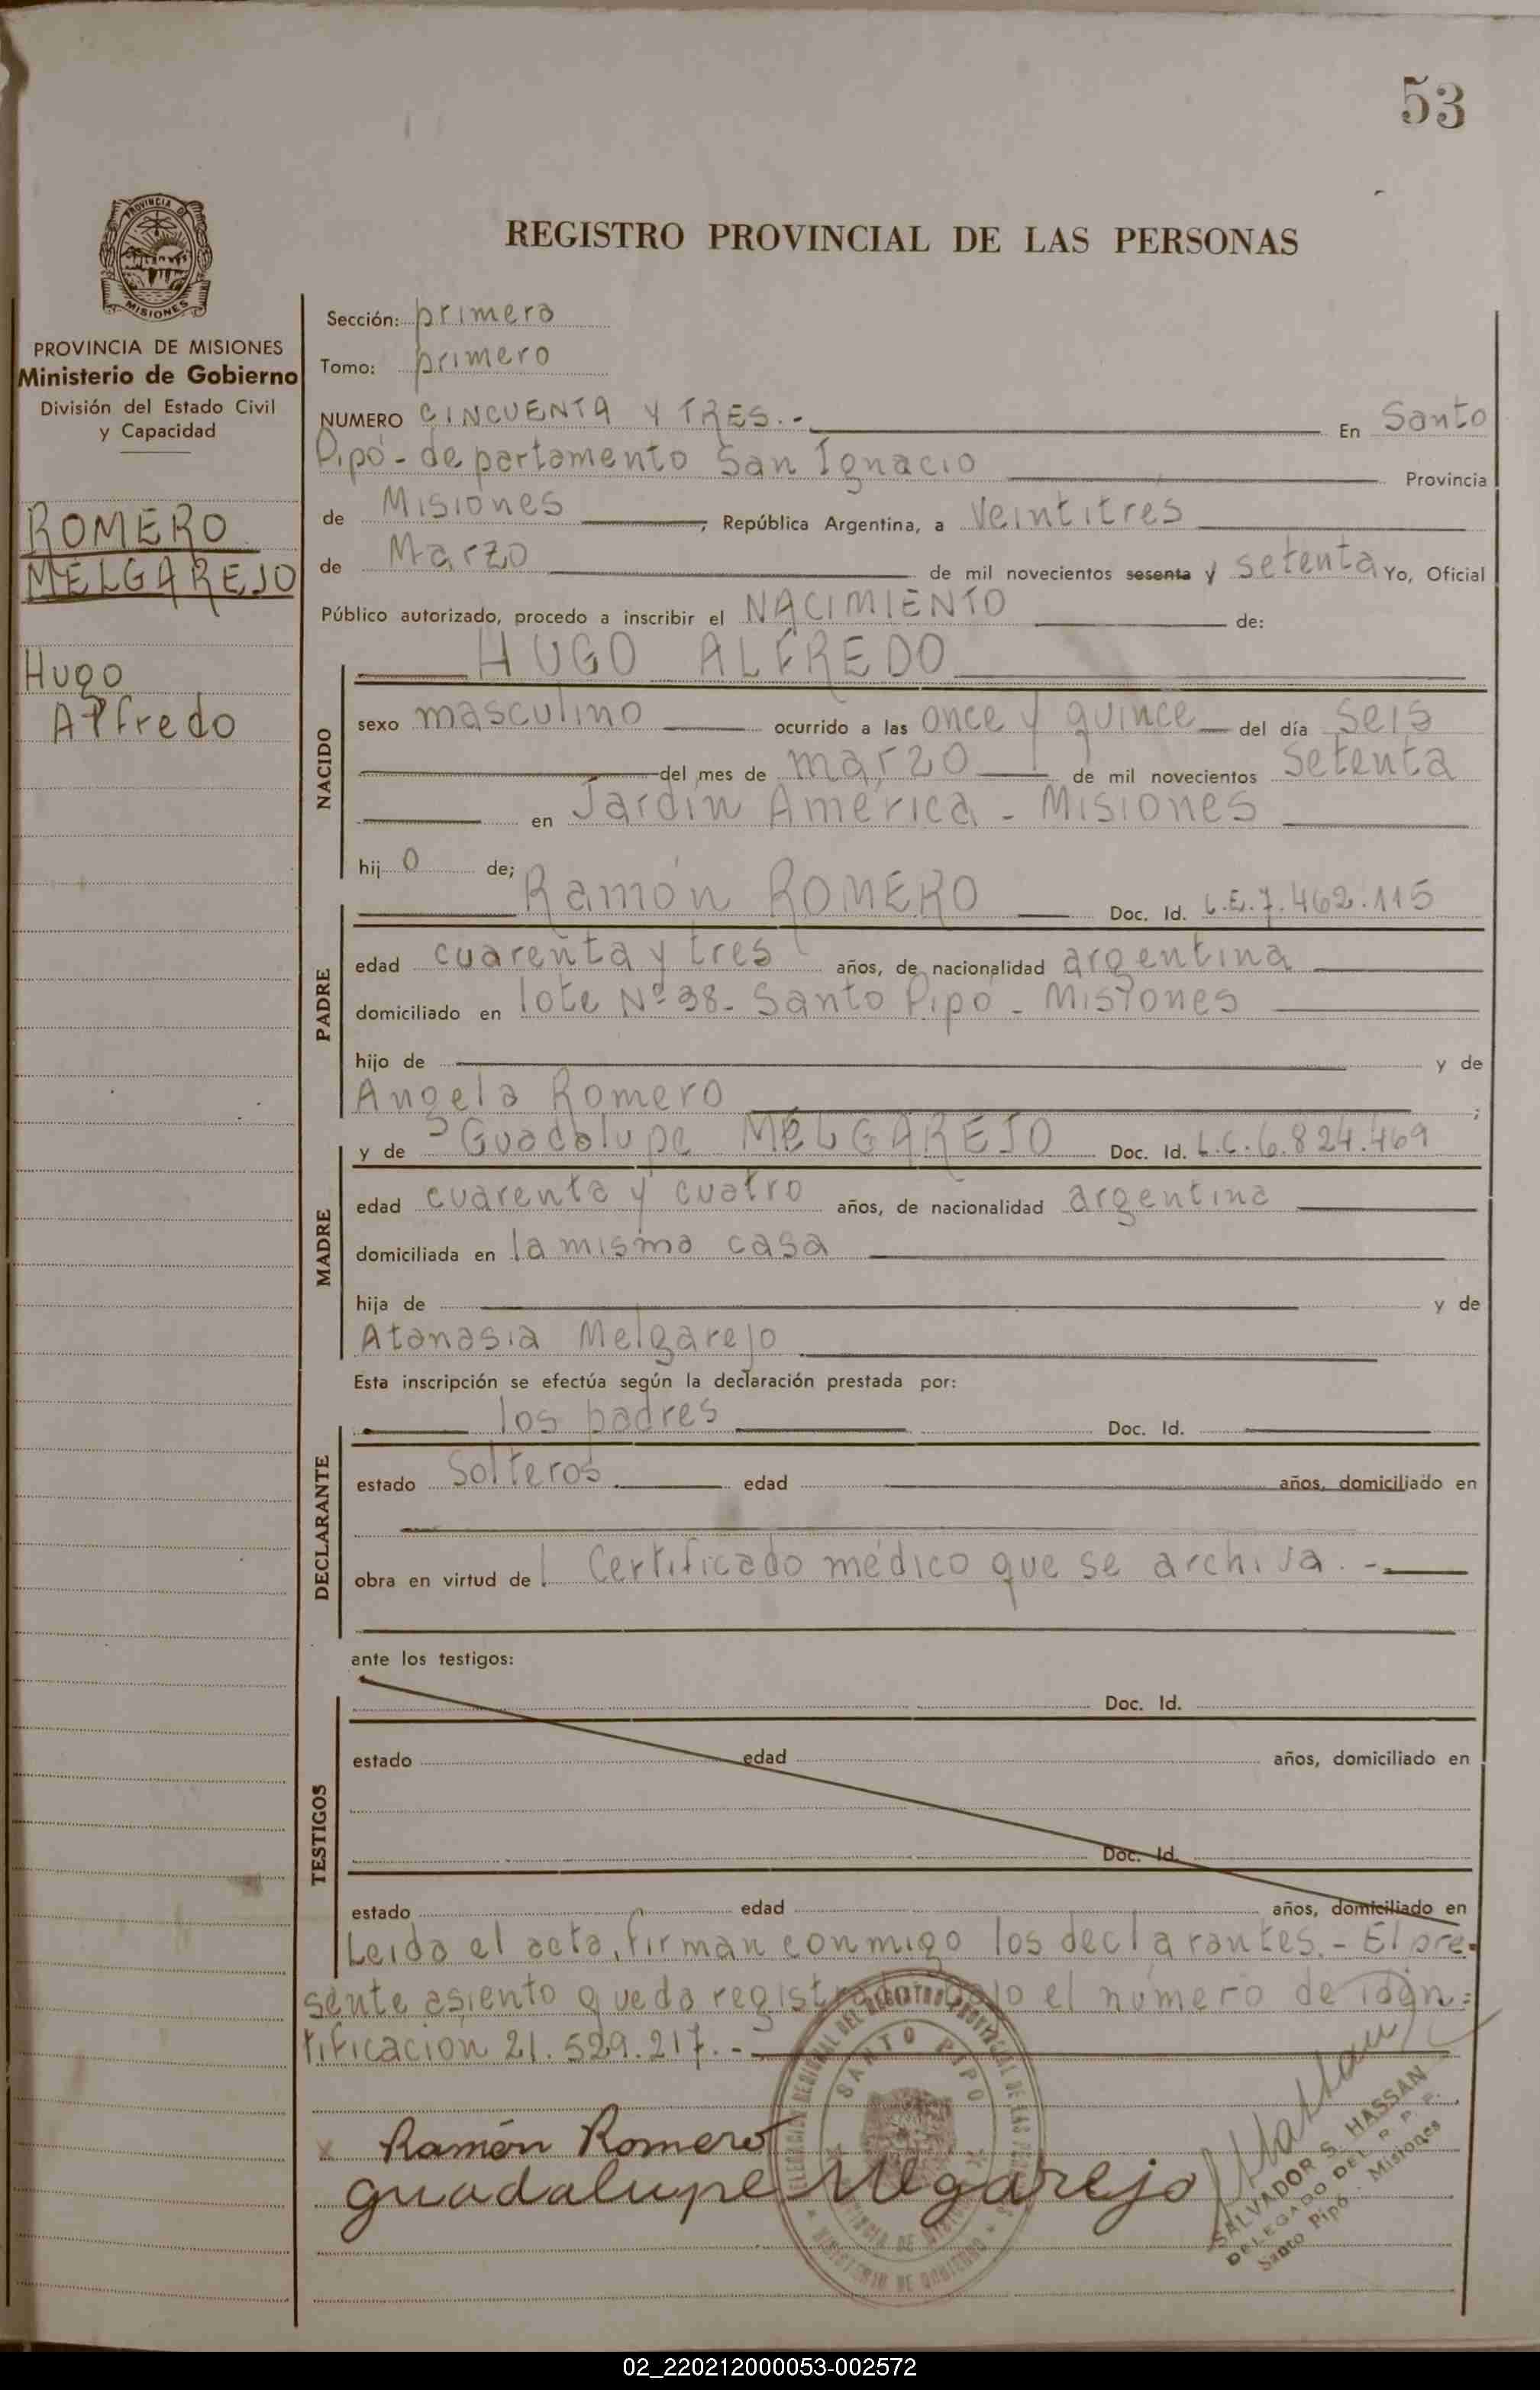 53
PROVINCIA DE
MISIONES
PROVINCIA DE MISIONES
Ministerio de Gobierno
División del Estado Civil
y Capacidad
ROMERO
MELGAREJO
Hugo
Alfredo
REGISTRO PROVINCIAL DE LAS PERSONAS
Sección: primera
Tomo: primero
NUMERO CINCUENTA Y TRES.- En Santo
Pipó - departamento San Ignacio Provincia
de Misiones, República Argentina, a veintitres
de Marzo de mil novecientos sesenta y setenta Yo, Oficial
Público autorizado, procedo a inscribir el NACIMIENTO de:
HUGO ALFREDO
NACIDO
sexo masculino ocurrido a las once y quince del día seis
del mes de marzo de mil novecientos setenta
en Jardín América - Misiones
hijo de;
PADRE
Ramón ROMERO Doc. Id. L.E.7.462.115
edad cuarenta y tres años, de nacionalidad argentina
domiciliado en lote Nº 38- Santo Pipó - Misiones
hijo de y de
Angela Romero ;
MADRE
y de Guadalupe MELGAREJO Doc. Id. L.C.6.824.469
edad cuarenta y cuatro años, de nacionalidad argentina
domiciliada en la misma casa
hija de y de
Atanasia Melgarejo
Esta inscripción se efectúa según la declaración prestada por:
DECLARANTE
los padres Doc. Id.
estado solteros edad años, domiciliado en
obra en virtud del Certificado médico que se archiva.-
ante los testigos:
TESTIGOS
Doc. Id.
estado edad años, domiciliado en
Doc. Id.
estado edad años, domiciliado en
Leida el acta, firman conmigo los declarantes.- El pre-
sente asiento queda registrado bajo el número de iden=
tificación 21.529.217.-
SANTO PIPO
Ramón Romero
guadalupe Melgarejo
SALVADOR S. HASSAN
DELEGADO DEL R. P. P.
Santo Pipó - Misiones
02_220212000053-002572